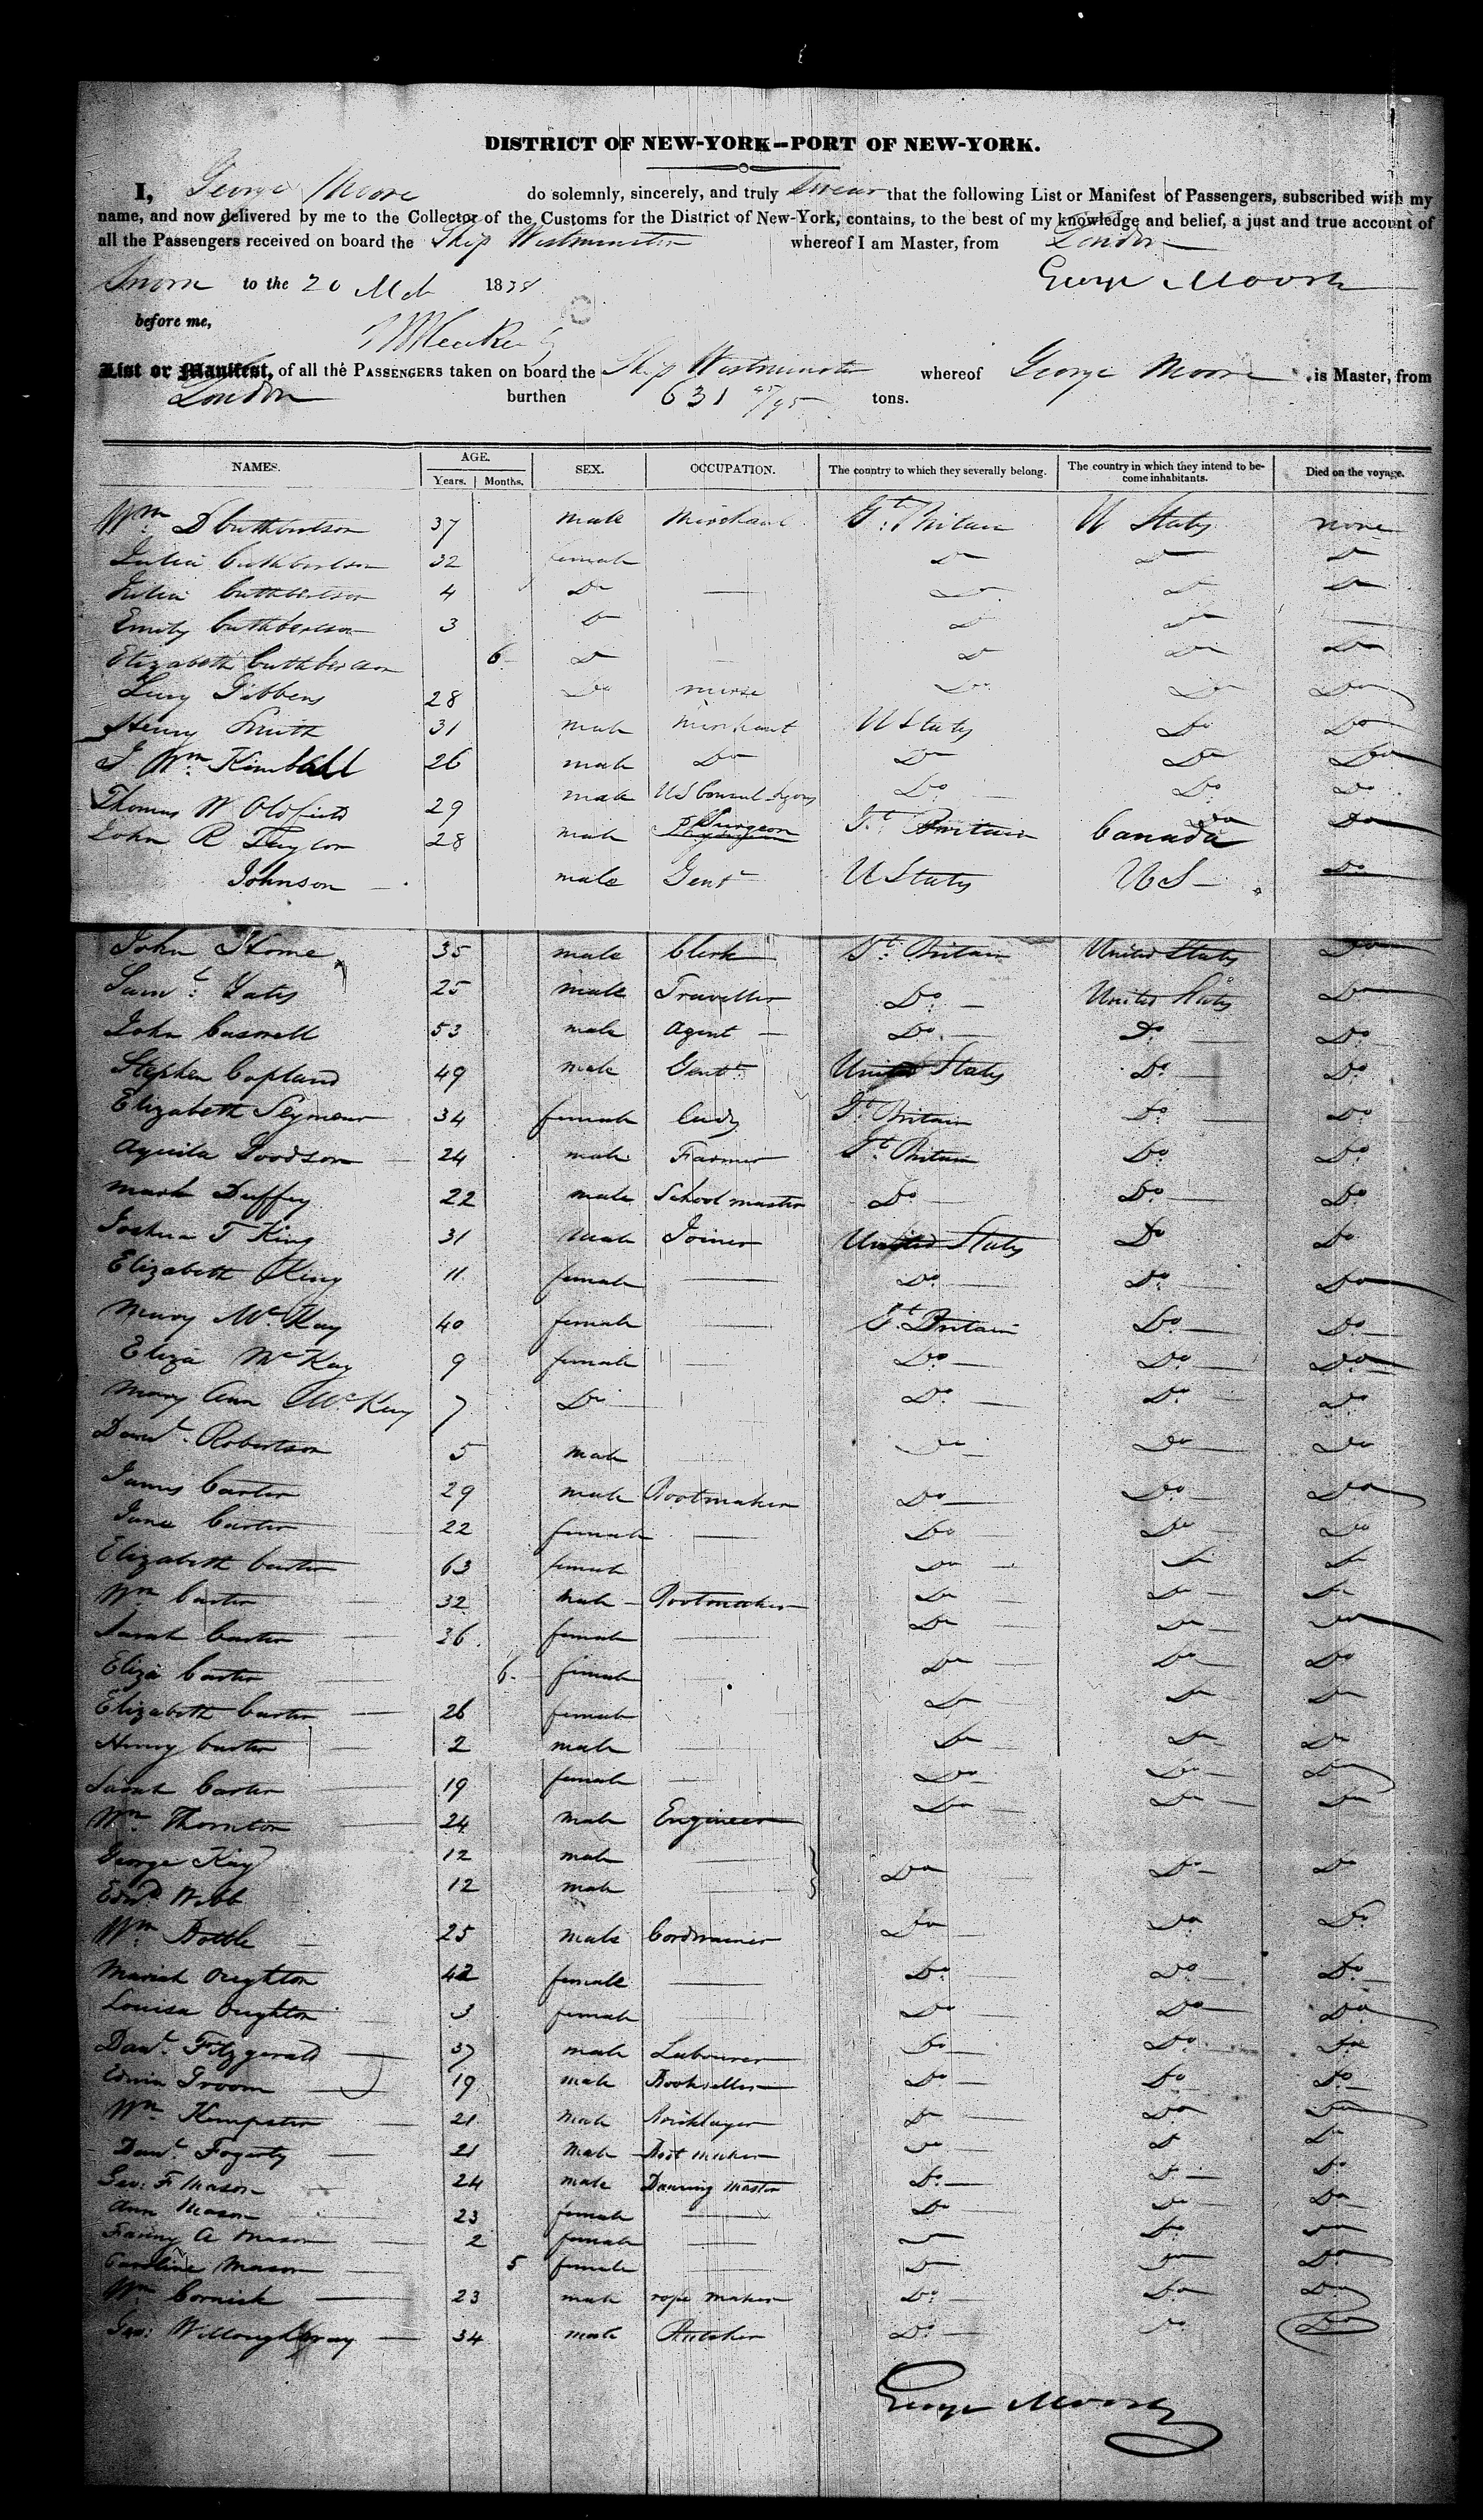 DISTRICT OF NEW-YORK—PORT OF NEW-YORK.
I, George Moore do solemnly, sincerely, and truly swear that the following List or Manifest of Passengers, subscribed with my
name, and now delivered by me to the Collector of the Customs for the District of New-York, contains, to the best of my knowledge and belief, a just and true account of
all the Passengers received on board the Ship Westminster whereof I am Master, from London
Sworn to the 20 Mch 1838 George Moore
before me,
List or Manifest, of all the PASSENGERS taken on board the Ship Westminster whereof George Moore is Master, from
London burthen 631 45/95 tons.
NAMES. AGE. Years. Months. SEX. OCCUPATION. The country to which they severally belong. The country in which they intend to become inhabitants. Died on the voyage.
Wm D Cuthbertson 37 male Merchant Gt. Britain U States none
Julia Cuthbertson 32 female Do Do Do
Julia Cuthbertson 4 Do — Do Do Do
Emily Cuthbertson 3 Do Do Do —
Elizabeth Cuthbertson 6 Do — Do Do Do
Lucy Gibbens 28 Do nurse Do Do Do
Henry Smith 31 male Merchant U States Do Do
J Wm Kimball 26 male Do Do Do Do
Thomas W Oldfield 29 male US Consul Lyons Do Do Do
John R Taylor 28 male Surgeon Gt. Britain Canada Do
Johnson — male Gent U States US — Do
John Thorne 35 male Clerk Gt. Britain United States Do
Saml. Yates 25 male Traveller Do — United States Do
John Caswell 53 male Agent — Do — Do — Do
Stephen Copland 49 male Gent United States Do — Do
Elizabeth Seymour 34 female Lady Gt. Britain Do — Do
Aquila Goodson 24 male Farmer Gt. Britain Do — Do
Mark Duffey 22 male School master Do — Do — Do
Joshua T King 31 male Joiner United States Do Do
Elizabeth King 11 female — Do — Do — Do
Mary McKay 40 female — Gt. Britain Do — Do
Eliza McKay 9 female — Do — Do — Do
Mary Ann McKay 7 Do — Do — Do — Do
Danl. Robertson 5 male Do Do Do
James Carter 29 male Bootmaker Do — Do — Do
Jane Carter 22 female — Do — Do — Do
Elizabeth Carter 63 female Do — Do Do
Wm Carter 32 male — Bootmaker Do — Do — Do
Sarah Carter — 36 female — Do — Do — Do
Eliza Carter — 6 female — Do — Do — Do
Elizabeth Carter — 26 female Do — Do — Do
Henry Carter — 2 male — Do Do — Do
Sarah Carter — 19 female — Do — Do — Do
Wm Thornton — 24 male Engineer Do — Do — Do
George Kay 12 male —
Edwd Webb 12 male — Do Do — Do
Wm Bottle — 25 male Cordwainer Do — Do — Do
Mariah Oughton 42 female — Do — Do — Do
Louisa Oughton — 3 female — Do — Do — Do
Danl. Fitzgerald — 37 male Labourer Do — Do — Do
Edwin Groom — 19 male Bookseller Do — Do Do
Wm Kempster — 21 male Bricklayer Do — Do Do
Danl. Fogerty — 21 male Boot maker Do — Do Do
Geo: F Mason — 24 male Dancing Master Do — Do — Do
Ann Mason — 23 female — Do — Do — Do
Fanny A Mason — 2 female — Do Do — Do
Caroline Mason — 5 female — Do — Do — Do
Wm Cornish — 23 male rope maker Do — Do — Do
34 male Butcher Do — Do Do
George Moore